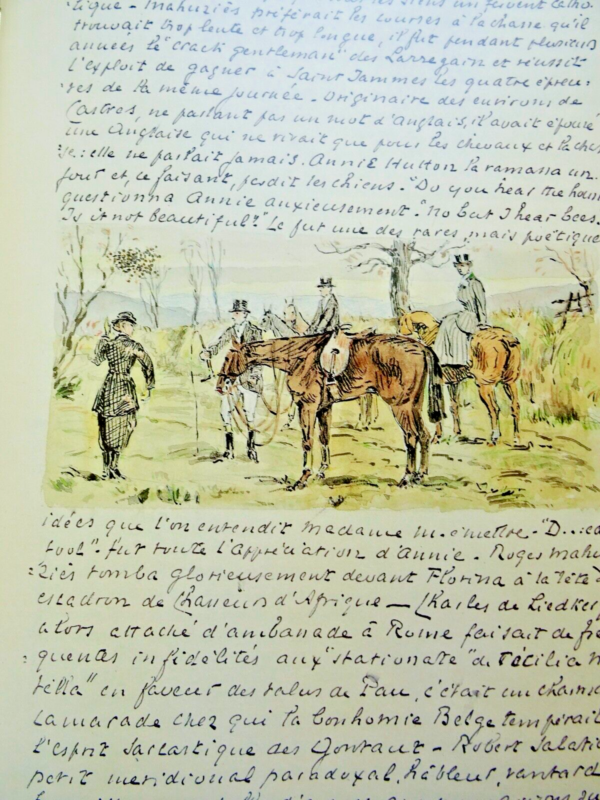 tique - Mahuziès préférait les courses à la chasse qu'il
trouvait trop lente et trop longue, il fut pendant plusieurs
années le "crack gentleman" des Larregain et réussit
l'exploit de gagner à Saint Jammes les quatre épreu-
ves de la même journée - originaire des environs de
Castres, ne parlant pas un mot d'anglais, il avait épousé
une Anglaise qui ne vivait que pour les chevaux et la chas
se: elle ne parlait jamais. Annie Hutton la ramassa un
jour et, ce faisant, perdit les chiens. "Do you hear the hou
questionna Annie anxieusement. "No but I hear bees.
Is it not beautiful?" Ce fut une des rares, mais poétique
idées que l'on entendit Madame M. émettre. "D...ed
fool" - fut toute l'appréciation d'Annie - Roger Mahu
ziès tomba glorieusement devant Florina à la tête d
escadron de Chasseurs d'Afrique — Charles de Liedker
alors attaché d'ambassade à Rome faisait de fré
quentes infidélités aux "stationate" de "Cécilia M
tella" en faveur des talus de Pau, c'était un charma
camarade chez qui la bonhomie Belge tempérait
l'esprit sarcastique des Gontaut - Robert Salati
petit méridional paradoxal, hâbleur, vantard